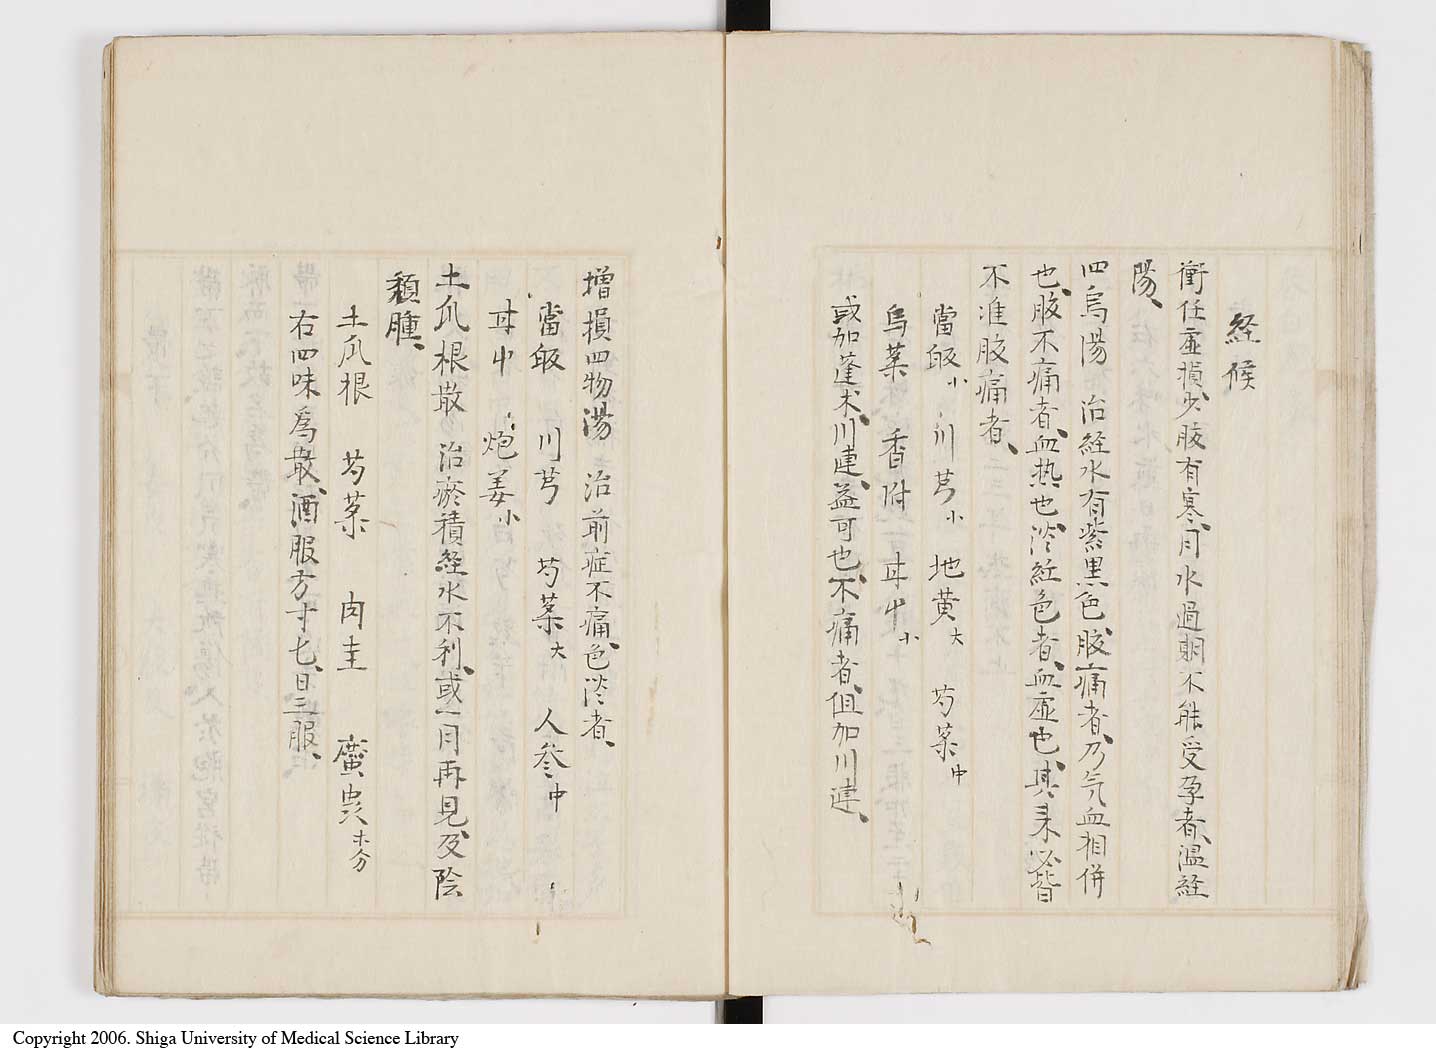 経候
衝任虚損、少腹有寒、月水過期不能受孕者、温経
陽、
四烏湯 治経水有紫黒色腹痛者、乃気血相併
也、腹不痛者、血热也、淡紅色者、血虚也、其来必皆
不准腹痛者、
當皈小 川芎小 地黄大 芍薬中
烏薬 香附 甘中小
或加蓬朮、川連、益可也、不痛者、但加川連、
増損四物湯 治前症不痛、色淡者、
當皈 川芎 芍薬大 人参中
甘中 炮姜小
土瓜根散 治瘀積経水不利、或一月再見及陰
㿗腫、
土瓜根 芍薬 肉圭 䗪虫各等分
右四味為散、酒服方寸匕、日三服、
Copyright 2006. Shiga University of Medical Science Library